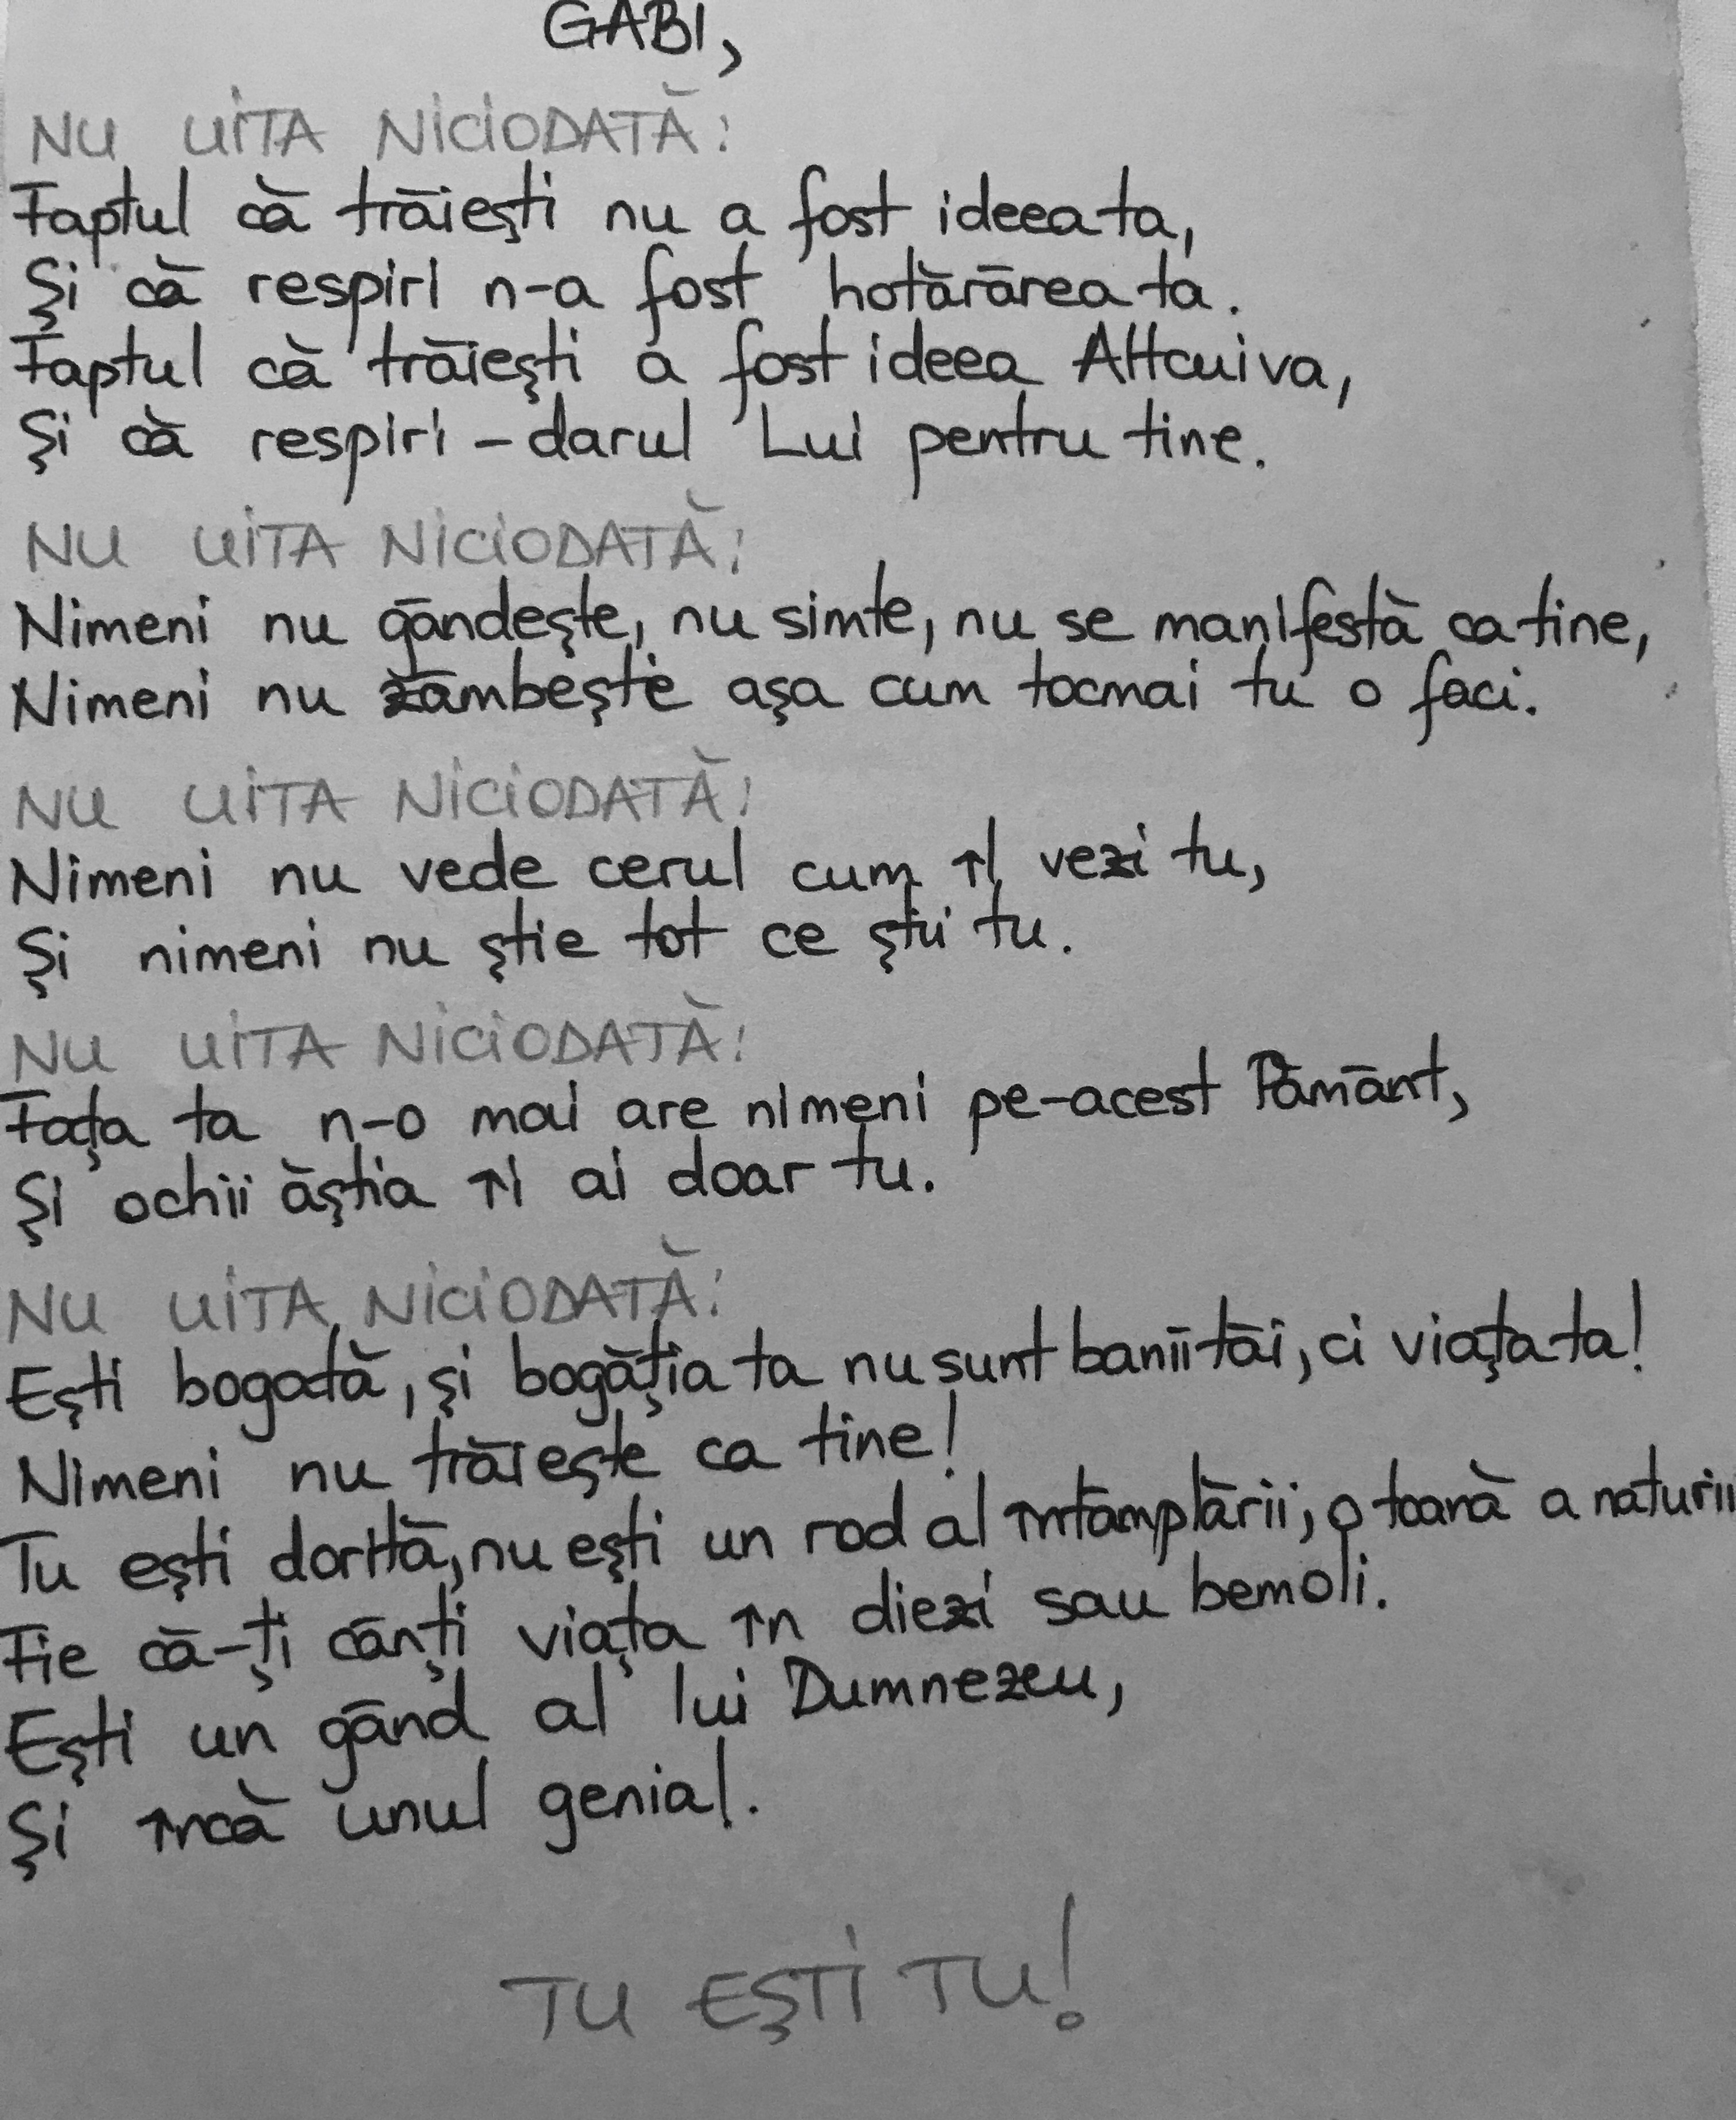 GABI,
NU UITA NICIODATĂ:
Faptul că trăiești nu a fost ideea ta,
Și că respiri n-a fost hotărârea ta.
Faptul că trăiești a fost ideea Altcuiva,
Și că respiri - darul Lui pentru tine.
NU UITA NICIODATĂ:
Nimeni nu gândește, nu simte, nu se manifestă ca tine,
Nimeni nu zâmbește așa cum tocmai tu o faci.
NU UITA NICIODATĂ:
Nimeni nu vede cerul cum îl vezi tu,
Și nimeni nu știe tot ce știi tu.
NU UITA NICIODATĂ:
Fața ta n-o mai are nimeni pe-acest Pământ,
Și ochii ăștia îi ai doar tu.
NU UITA NICIODATĂ:
Ești bogată, și bogăția ta nu sunt banii tăi, ci viața ta!
Nimeni nu trăiește ca tine!
Tu ești dorită, nu ești un rod al întâmplării, o toană a naturii
Fie că-ți cânți viața în diezi sau bemoli.
Ești un gând al lui Dumnezeu,
Și încă unul genial.
TU EȘTI TU!